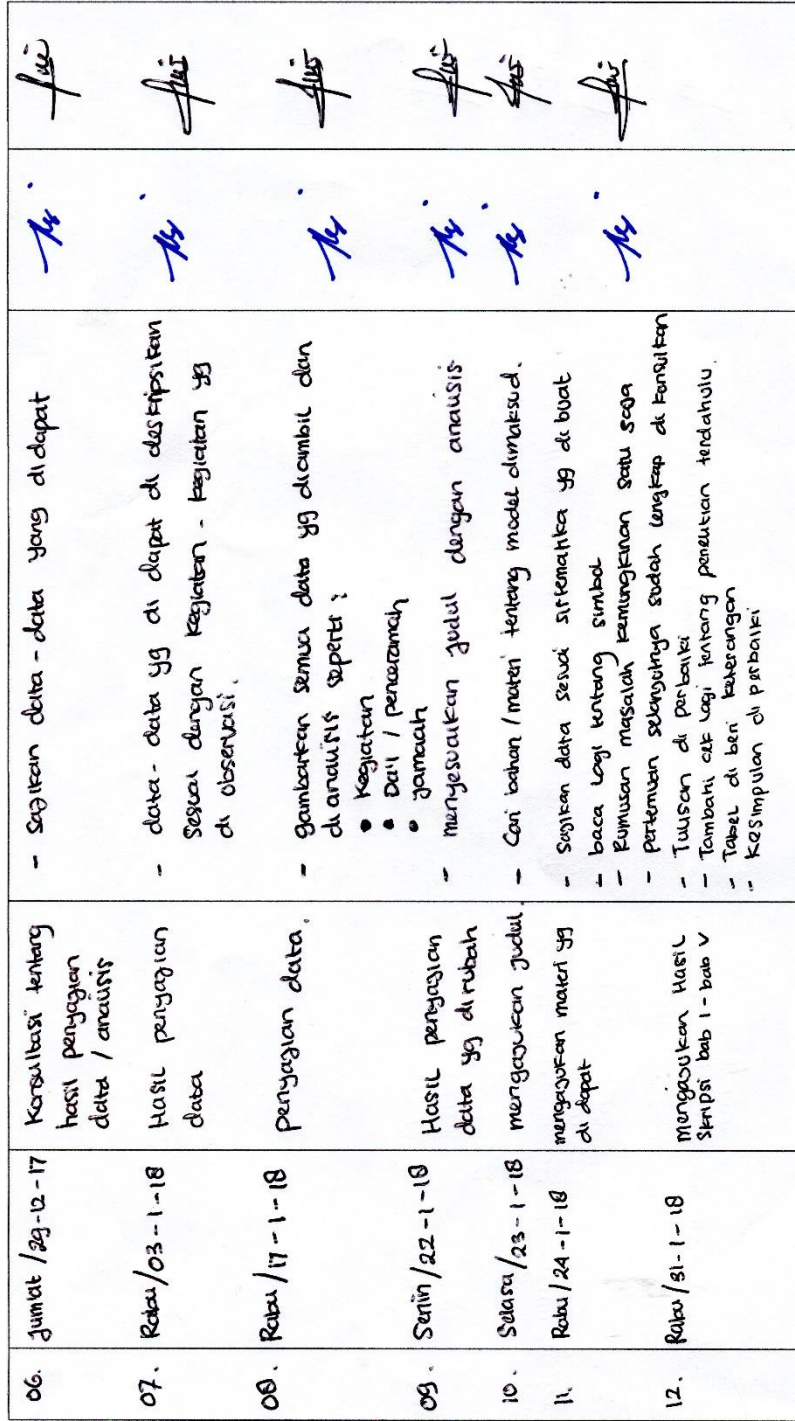 06. Jumlat / 29-12-17
Konsultasi tentang
hasil penyajian
data / analisis
- Sajikan data-data yang didapat
07. Rabu / 03-1-18
Hasil penyajian
data
- data-data yg di dapat di deskripsikan
sesuai dengan kegiatan-kegiatan yg
di observasi.
08. Rabu / 17-1-18
penyajian data.
- gambarkan semua data yg diambil dan
di analisis seperti :
• Kegiatan
• Da'i / penceramah
• jamaah
09. Senin / 22-1-18
Hasil penyajian
data yg dirubah
- menyesuaikan judul dengan analisis
10. Selasa / 23-1-18
mengajukan judul.
- Cari bahan / materi tentang model dimaksud.
11. Rabu / 24-1-18
mengajukan materi yg
di dapat
- Sajikan data sesuai sistematika yg di buat
- baca lagi tentang simbol
- Rumusan masalah kemungkinan satu saja
- pertemuan selanjutnya sudah lengkap di konsulkan
12. Rabu / 31-1-18
Mengajukan Hasil
Skripsi bab 1 - bab V
- Tulisan di perbaiki
- Tambahi cek lagi tentang penelitian terdahulu.
- Tabel di beri keterangan
- Kesimpulan di perbaiki